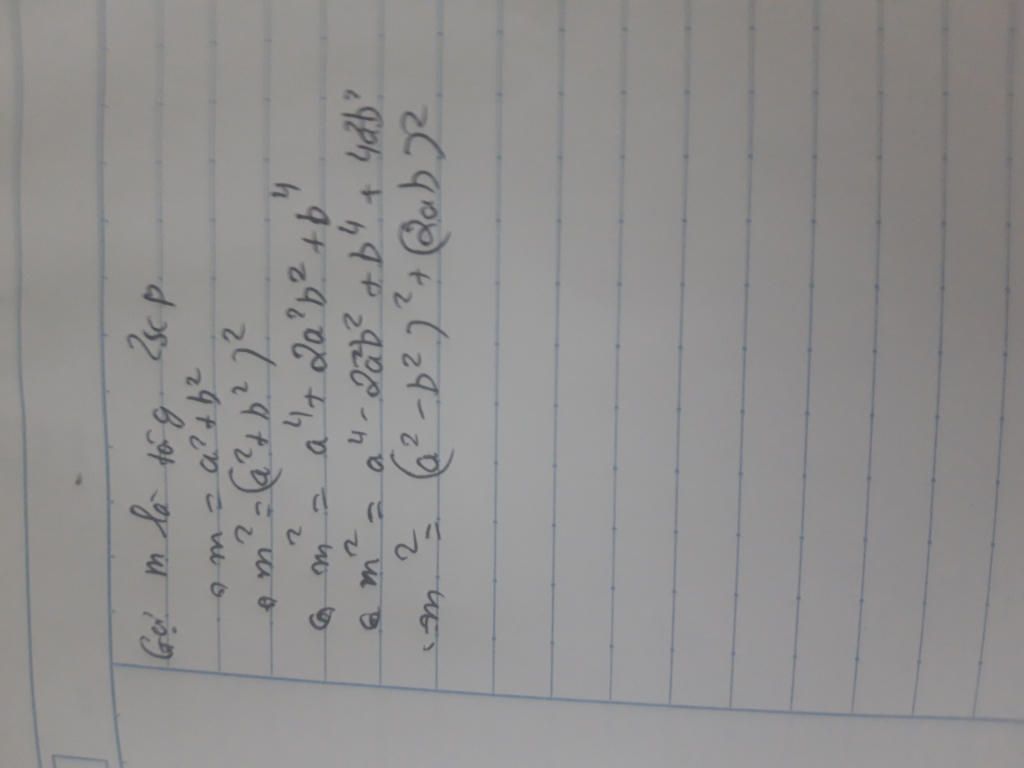 Gọi m là tổg 2scp
m = a² + b²
m² = (a² + b²)²
m² = a⁴ + 2a²b² + b⁴
m² = a⁴ - 2a²b² + b⁴ + 4a²b²
→ m² = (a² - b²)² + (2ab)²